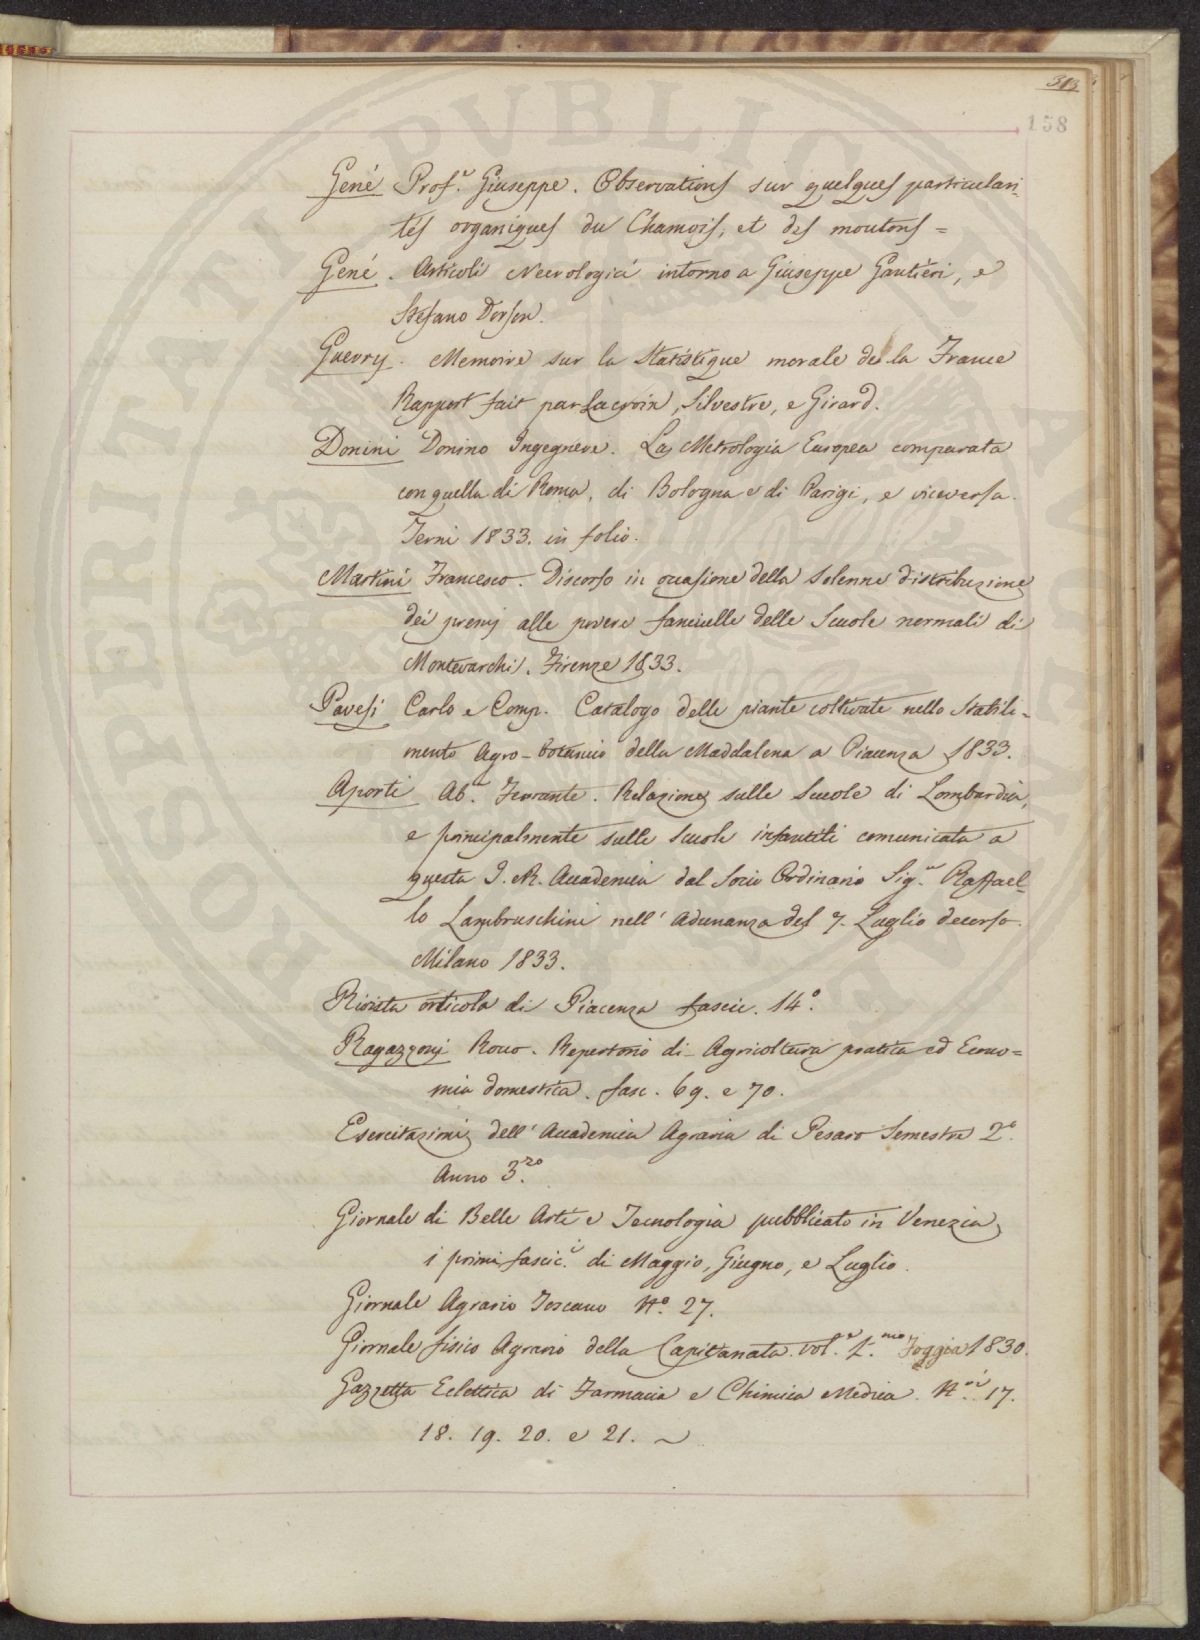 313
158
Gené Prof.r Giuseppe. Observations sur quelques particulari-
tés organiques du Chamois, et des moutons =
Gené. Articoli Necrologici intorno a Giuseppe Gautieri, e
Stefano Dorson.
Guerry. Memoire sur la Statistique morale de la France
Rapport fait par Lacroix, Silvestre, e Girard.
Donini Donino Ingegnere. La Metrologia Europea comparata
con quella di Roma, di Bologna e di Parigi, e viceversa.
Terni 1833. in folio.
Martini Francesco. Discorso in occasione della Solenne distribuzione
dei premj alle povere fanciulle delle Scuole normali di
Montevarchi. Firenze 1833.
Pavesi Carlo e Comp. Catalogo delle piante coltivate nello Stabili-
mento Agro-botanico della Maddalena a Piacenza 1833.
Aporti Ab.e Ferrante. Relazione sulle Scuole di Lombardia,
e principalmente sulle Scuole infantili comunicata a
questa I. R. Accademia dal Socio Ordinario Sig.r Raffael-
lo Lambruschini nell' Adunanza del 7. Luglio decorso.
Milano 1833.
Rivista orticola di Piacenza fascic. 14.o
Ragazzoni Rocco. Repertorio di Agricoltura pratica ed Econo=
mia domestica. fasc. 69. e 70.
Esercitazioni dell' Accademia Agraria di Pesaro Semestre 2.o
Anno 3.zo
Giornale di Belle Arti e Tecnologia pubblicato in Venezia
i primi fascic.i di Maggio, Giugno, e Luglio.
Giornale Agrario Toscano N.o 27.
Giornale fisico Agrario della Capitanata. vol.e 1.mo Foggia 1830.
Gazzetta Eclettica di Farmacia e Chimica Medica. N.ri 17.
18. 19. 20. e 21.